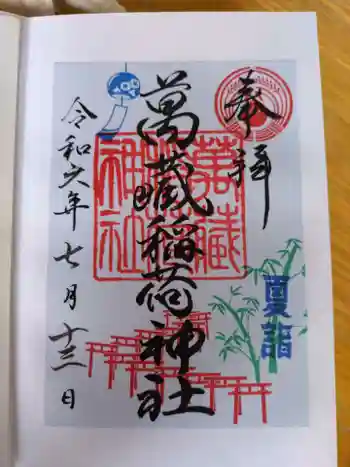 奉拝
萬藏稲荷神社
令和六年七月十三日
萬藏稲荷神社
夏詣